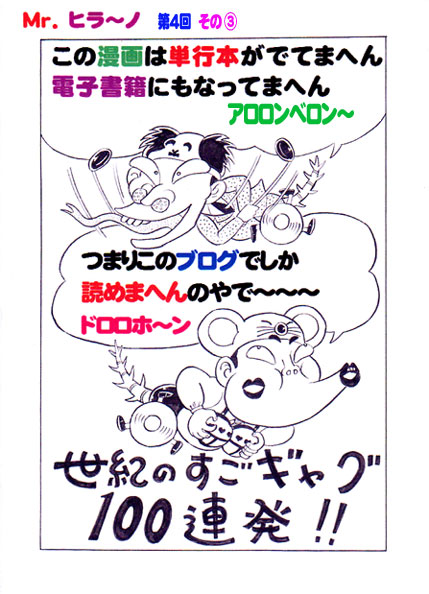 Mr. ヒラ〜ノ 第4回 その③
この漫画は単行本がでてまへん
電子書籍にもなってまへん
アロロンベロン〜
つまりこのブログでしか
読めまへんのやで〜〜〜
ドロロホ〜ン
世紀のすごギャグ
100連発!!